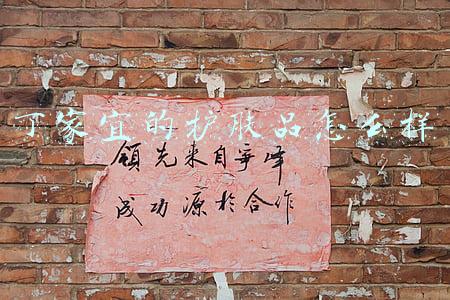 丁家宜的护肤品怎么样
领先来自争峰
成功源于合作